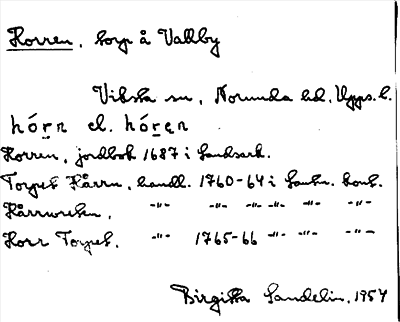 Horren, torp å Vallby
Viksta sn, Norunda hd, Upps. l.
hórn el. hóren
Horren, jordbok 1687 i landsark.
Torpet Hårrn, handl. 1760-64 i lantm. kont.
Hårrwreten, -"- -"- -"- -"- -"-
Horr Torpet, -"- 1765-66 -"- -"- -"-
Birgitta Sandelin, 1954